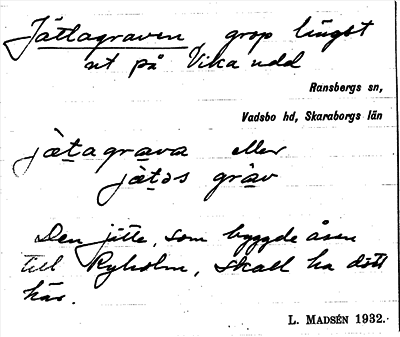 Jättagraven, grop längst
ut på Vika udd
Ransbergs sn,
Vadsbo hd, Skaraborgs län
jät̲agra̲va eller
jät̲əs grav
Den jätte, som byggde åsen
till Ryholm, skall ha dött
här.
L. MADSÉN 1932.